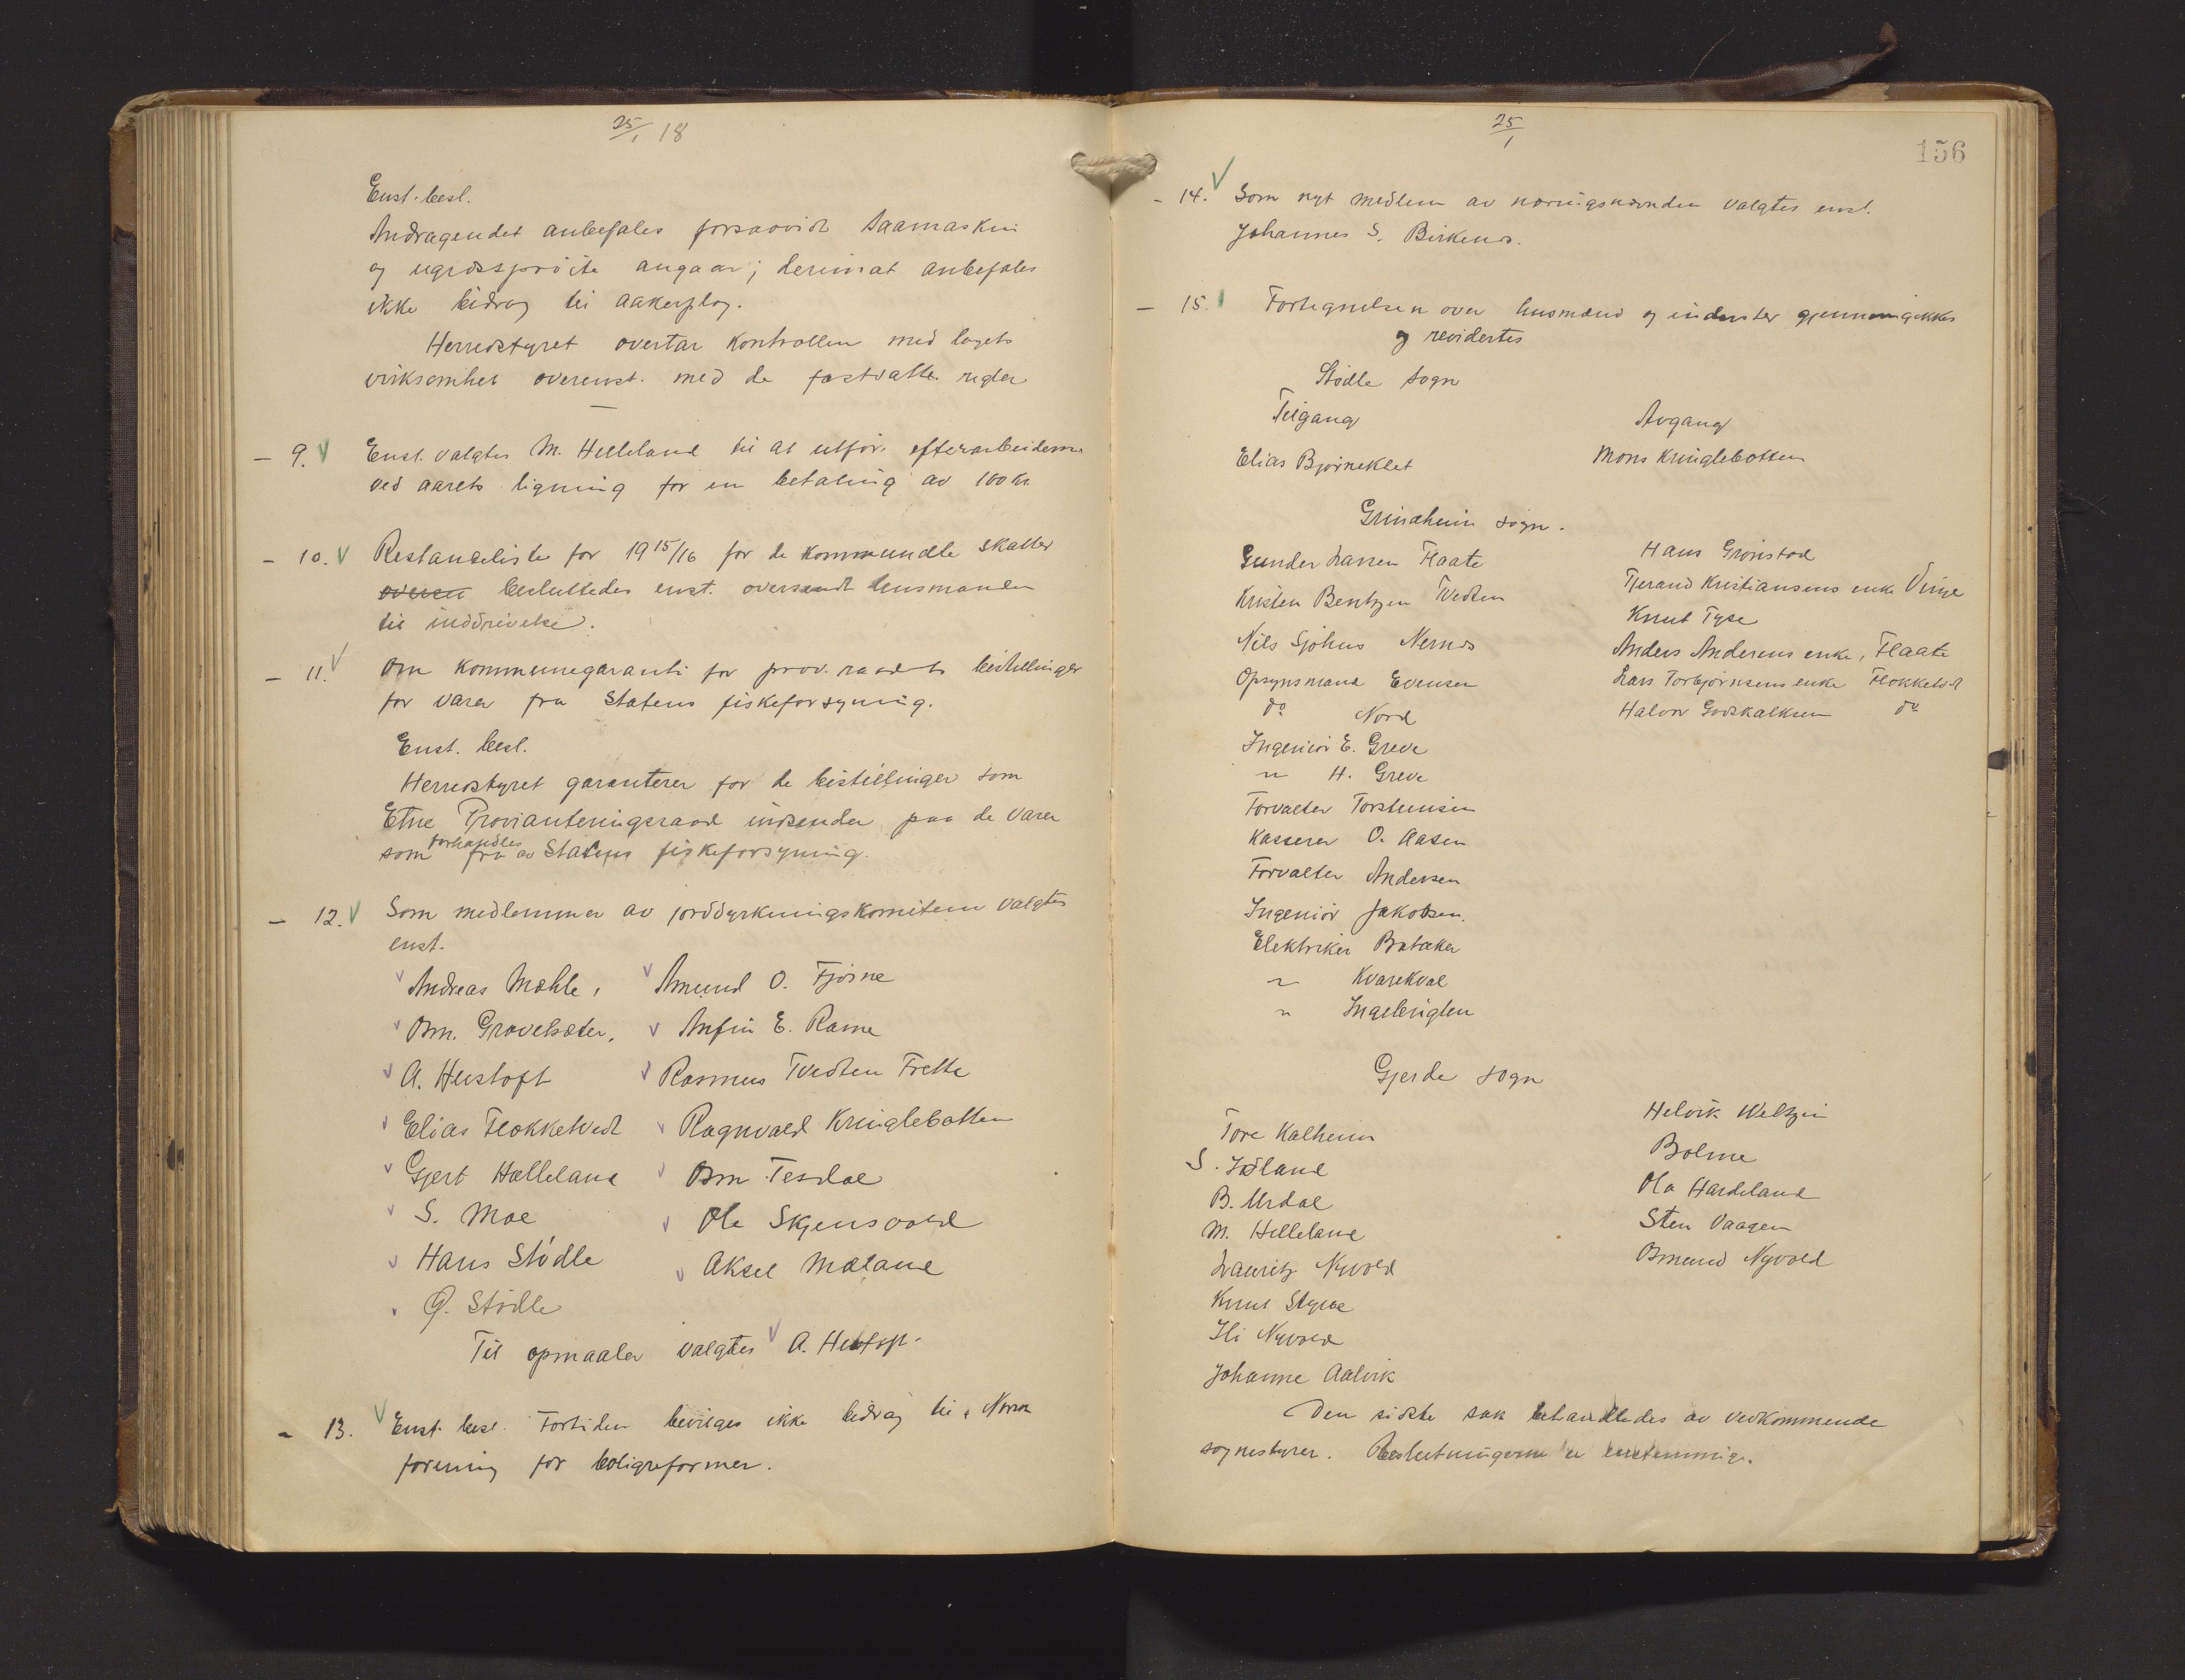 25/1 18
Enst. besl.
Andragendet anbefales forsaavidt saamaskin
og ugræssprøite angaar; derimot anbefales
ikke bidrag til aakerplog.
Herredstyret overtar kontrollen med lagets
virksomhet overenst. med de fastsatte regler
- 9. Enst. valgtes M. Helleland til at utføre efterarbeiderne
ved aarets ligning for en betaling av 100 kr.
- 10. Restanseliste for 1915/16 for de kommunale skatter
oversen besluttedes enst. oversendt lensmanden
til inddrivelse.
- 11. Om kommunegaranti for prov. raadets bestillinger
for varer fra Statens fiskeforsyning.
Enst. besl.
Herredstyret garanterer for de bestillinger som
Etne Provianteringsraad indsender paa de varer
som forhandles fra av Statens fiskeforsyning.
- 12. Som medlemmer av jorddyrkningskomiteen valgtes
enst.
Andreas Mæhle, Amund O. Fjøsne
Osm. Gravelsæter, Anfin E. Rame
A. Hustoft Rasmus Tvedten Frette
Elias Flokketvedt Ragnvald Kringlebotten
Gjert Hælleland Osm. Tesdal
S. Moe Ole Skjensvold
Hans Stødle Aksel Mæland
G. Stødle
Til opmaaler valgtes A. Hustoft.
- 13. Enst. besl. Fortiden bevilges ikke bidrag til Norsk
forening for boligreformer.
25/1
156
- 14. Som nyt medlem av næringsnævnden valgtes enst.
Johannes S. Birkenes.
- 15. Fortegnelsen over husmænd og inderster gjennemgikkes
og revidertes
Stødle sogn
Tilgang Avgang
Elias Bjørneklet Mons Kringlebotten
Grindheim sogn.
Gunder Larsen Flaate Hans Grønstad
Kristen Bentzen Tvedten Tjerand Kristiansens enke Vinje
Nils Sjøhus Nernes Knut Tyse
Opsynsmand Evensen Anders Andersens enke, Flaate
do Nord Lars Torbjørnsens enke Flokketvedt
Ingeniør E. Greve Halvor Godskalksen do
" H. Greve
Forvalter Torstensen
Kasserer O. Aasen
Forvalter Andersen
Ingeniør Jakobsen.
Elektriker Bratæker
" Kvarekval
" Ingebrigten
Gjerde sogn
Tore Kalheim Helvik Weltzin
S. Jøsland Bolme
B. Urdal Ola Hardeland
M. Helleland Sten Vaagen
Lauritz Nyvold Osmund Nyvold
Knut Styve
Ili Nyvold
Johanne Aalvik
Den sidste sak behandledes av vedkommende
sognestyrer. Beslutningerne er enstemmige.